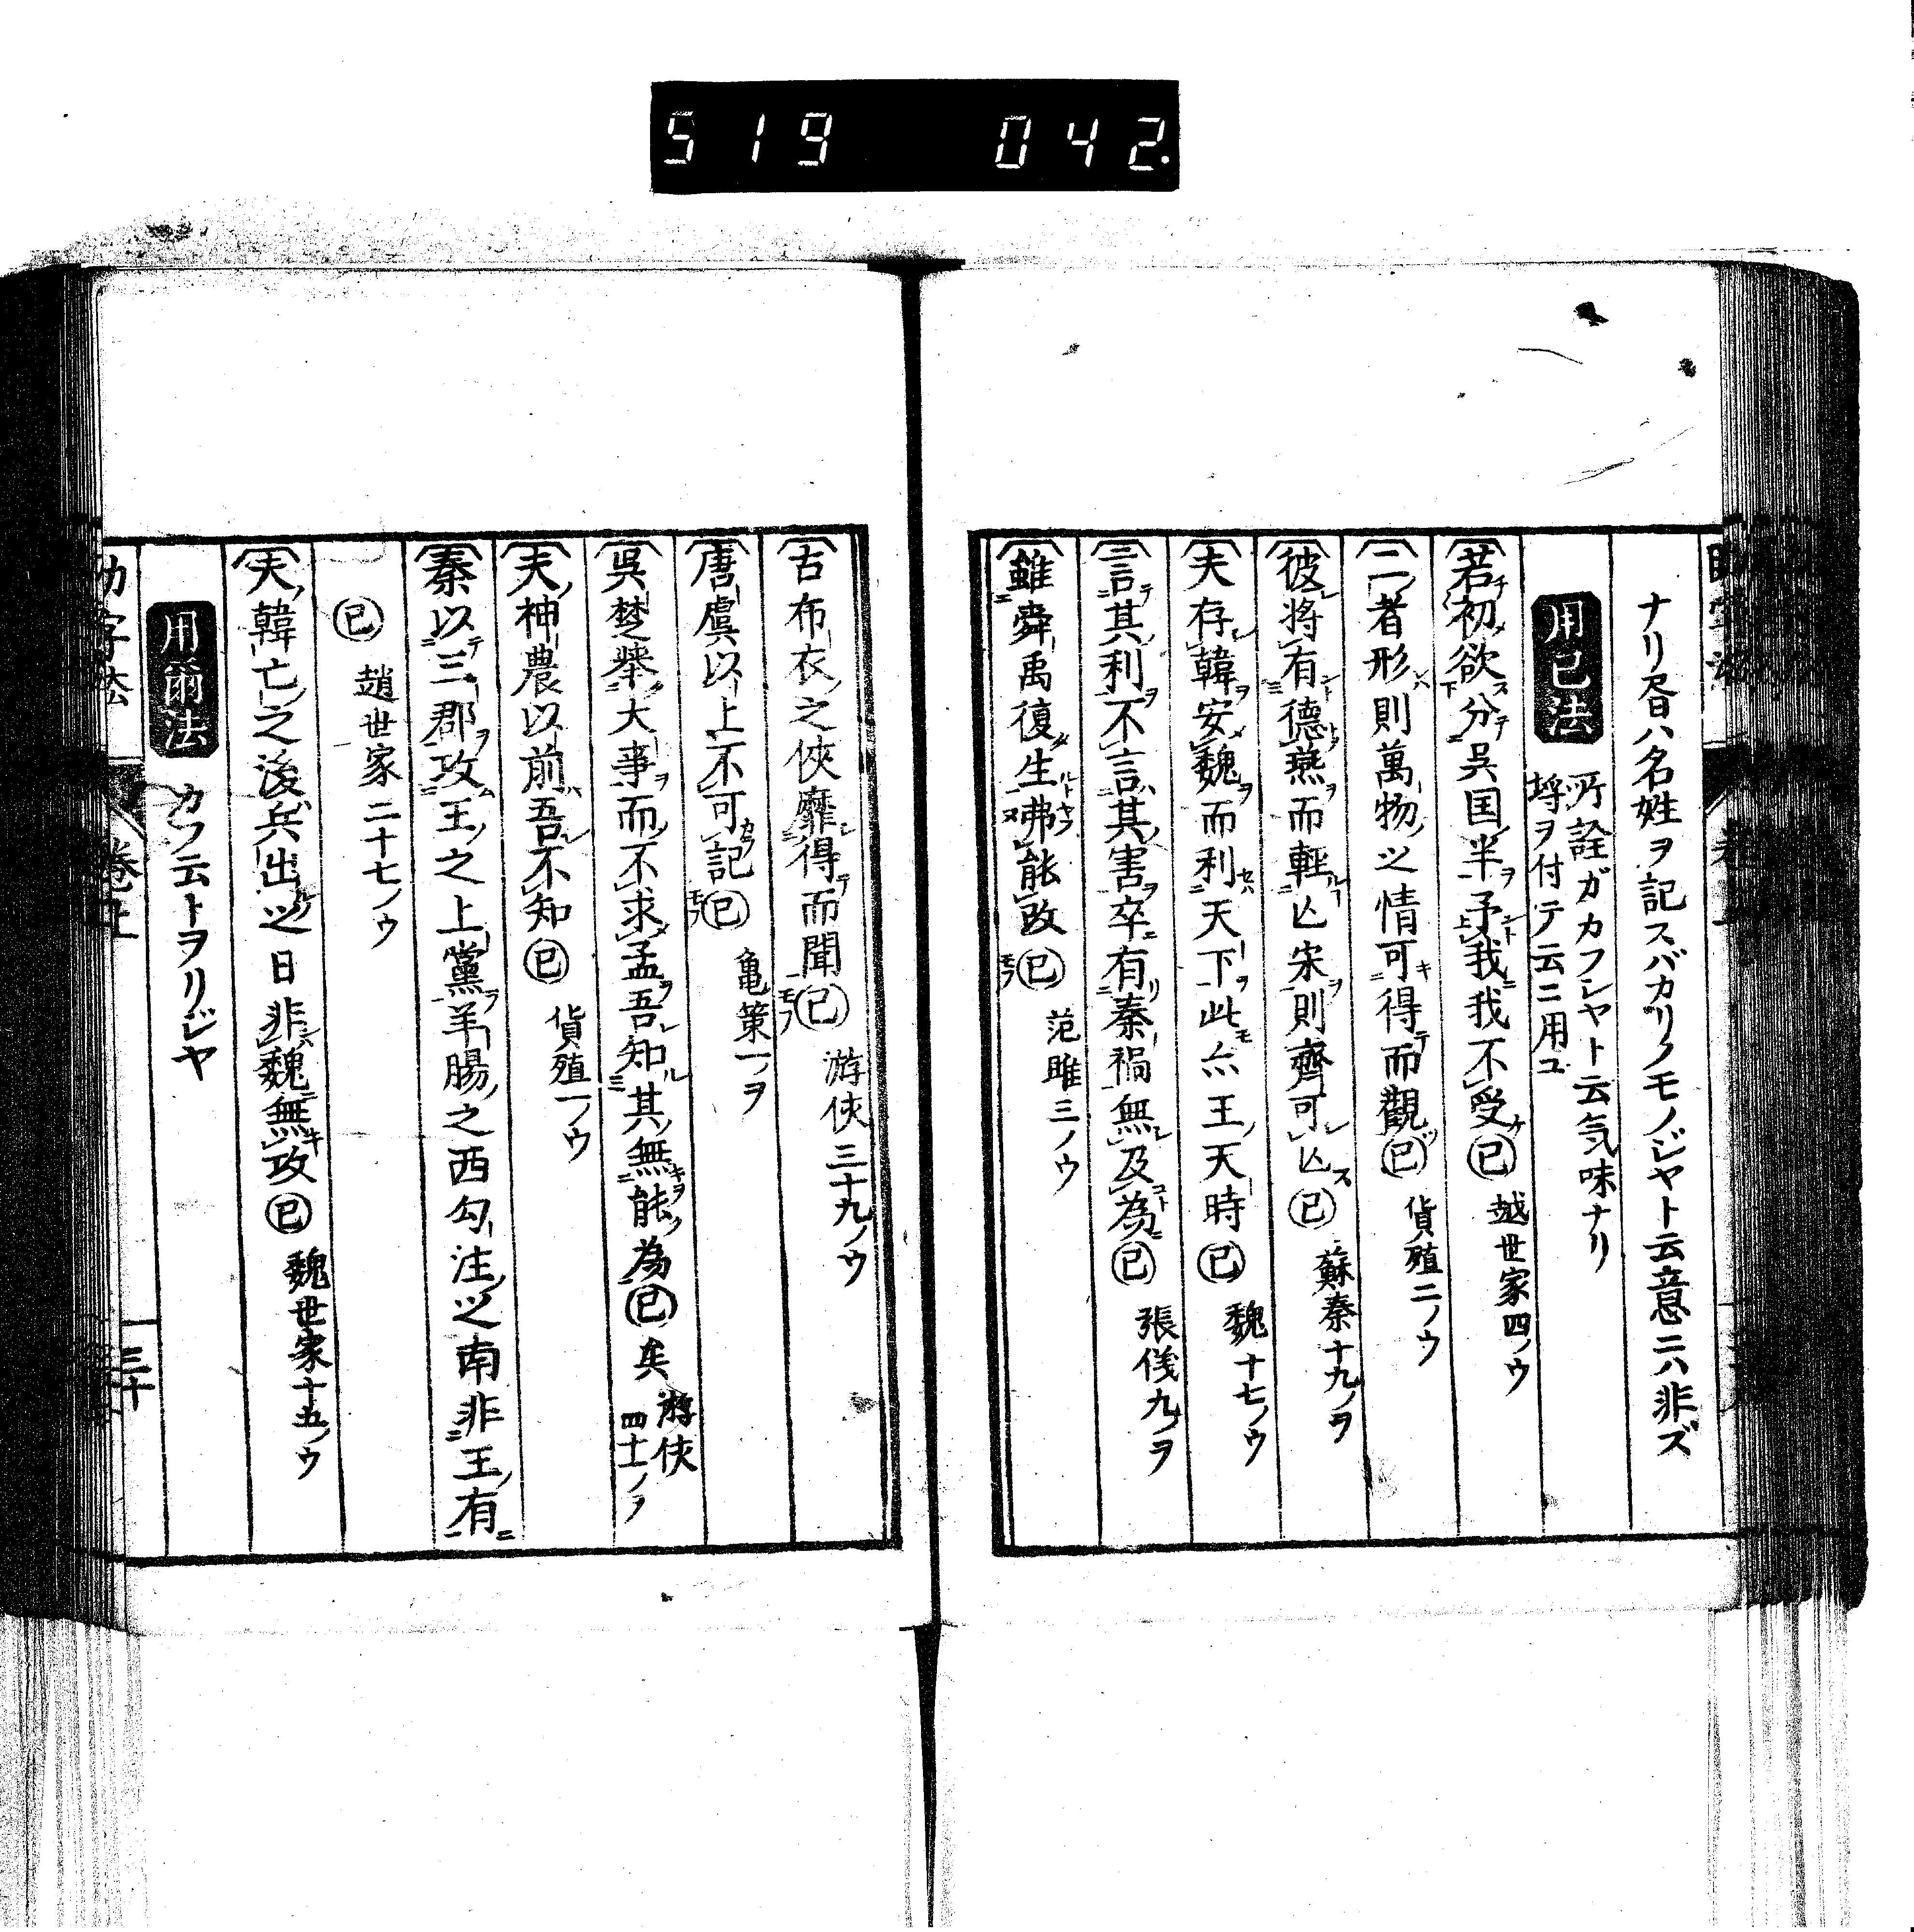 519 042.
ナリ㫺ハ名姓ヲ記スバカリノモノジヤト云意ニハ非ズ
用已法
所詮ガカフシヤト云気味ナリ
埒ヲ付テ云ニ用ユ
若初欲分呉国半予我我不受已 越世家四ノウ
二者形則萬物之情可得而觀已 貨殖二ノウ
彼將有德燕而輕亾宋則齊可亾已 蘇秦十九ノヲ
夫存韓安魏而利天下此亦王天時已 魏十七ノウ
言其利不言其害卒有秦禍無及為已 張儀九ノヲ
雖舜禹復生弗能改已 范雎三ノウ
古布衣之俠靡得而聞已 游俠三十九ノウ
唐虞以上不可記已 亀策一ノヲ
呉楚舉大事而不求孟吾知其無能為已矣 游俠四十ノヲ
夫神農以前吾不知已 貨殖一ノウ
秦以三郡攻王之上黨羊腸之西勾注之南非王有
已 趙世家二十七ノウ
夫韓亡之後兵出之日非魏無攻已 魏世家十五ノウ
用爾法 カフ云トヲリジヤ
助字法 卷上 三十